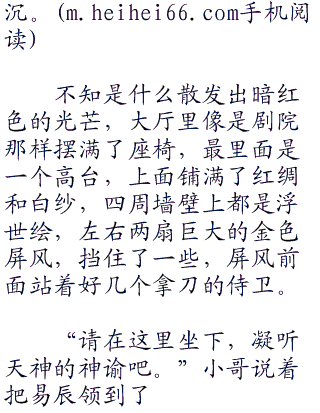 沉。(m.heihei66.com手机阅
读)
不知是什么散发出暗红
色的光芒，大厅里像是剧院
那样摆满了座椅，最里面是
一个高台，上面铺满了红绸
和白纱，四周墙壁上都是浮
世绘，左右两扇巨大的金色
屏风，挡住了一些，屏风前
面站着好几个拿刀的侍卫。
“请在这里坐下，凝听
天神的神谕吧。”小哥说着
把易辰领到了